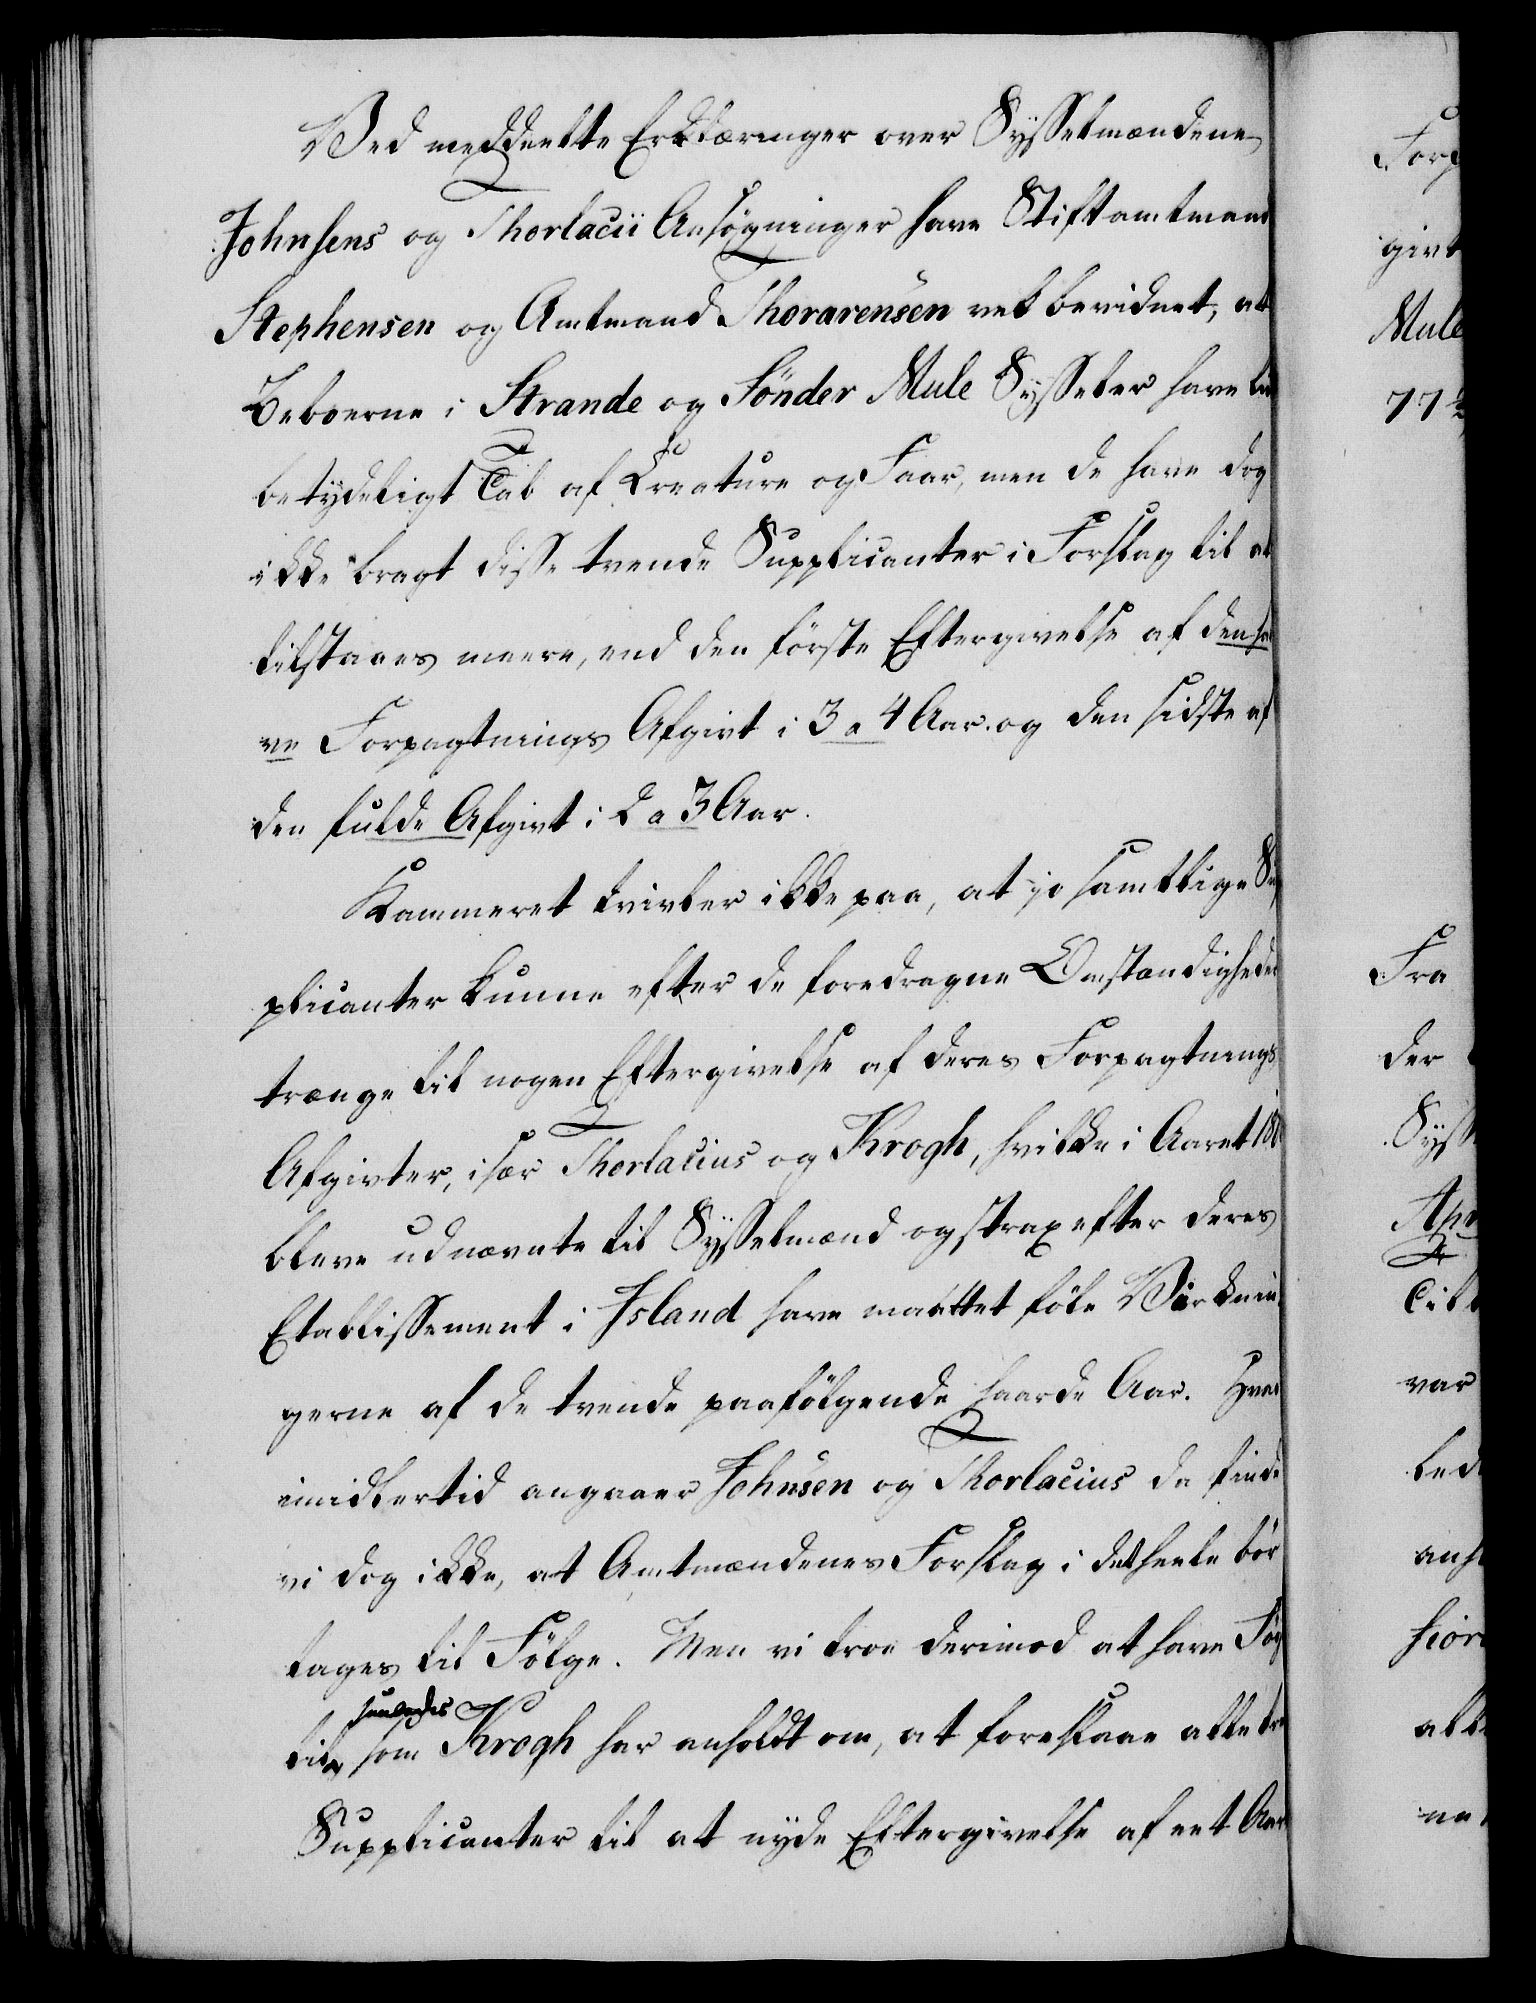 Ved meddeelte Erklæringer over Sysselmændene
Johnsens og Thorlacii Ansøgninger have Stiftamtmand
Stephensen og Amtmand Thorarensen vel bevidnet, at
Beboerne i Strande og Sönder Mule Sysseler have lidt
betydeligt Tab af Creature og Faar, men de have dog
ikke bragt disse tvende Supplicanter i Forslag til at
tilstaaes meere, end den förste Eftergivelse af den hal
ve Forpagtnings Afgivt i 3 a 4 Aar. og den sidste af
den fulde Afgivt i 2 a 3 Aar.
Kammeret tvivler ikke paa, at jo samtlige Sup
plicanter kunne efter de foredragne Omstændigheder
trænge til nogen Eftergivelse af deres Forpagtnings
Afgivter, især Thorlacius og Krogh, hvilke i Aaret 180
bleve udnævnte til Sysselmænd og strax efter deres
Etablissement i Island have maattet föle Virknin
gerne af de tvende paafölgende haarde Aar. Hvad
imidlertid angaaer Johnsen og Thorlacius da finde
vi dog ikke, at Amtmændenes Forslag i det heele bör
tages til Fölge. Men vi troe derimod at have Föy
saaledes
til som Krogh har anholdt om, at foreslaae alle tre
Supplicanter til at nyde Eftergivelse af eet Aars
Forp
givt
Mule
77
Fra
der
Syss
Apr
Till
var
led
anh
hior
alle
ne